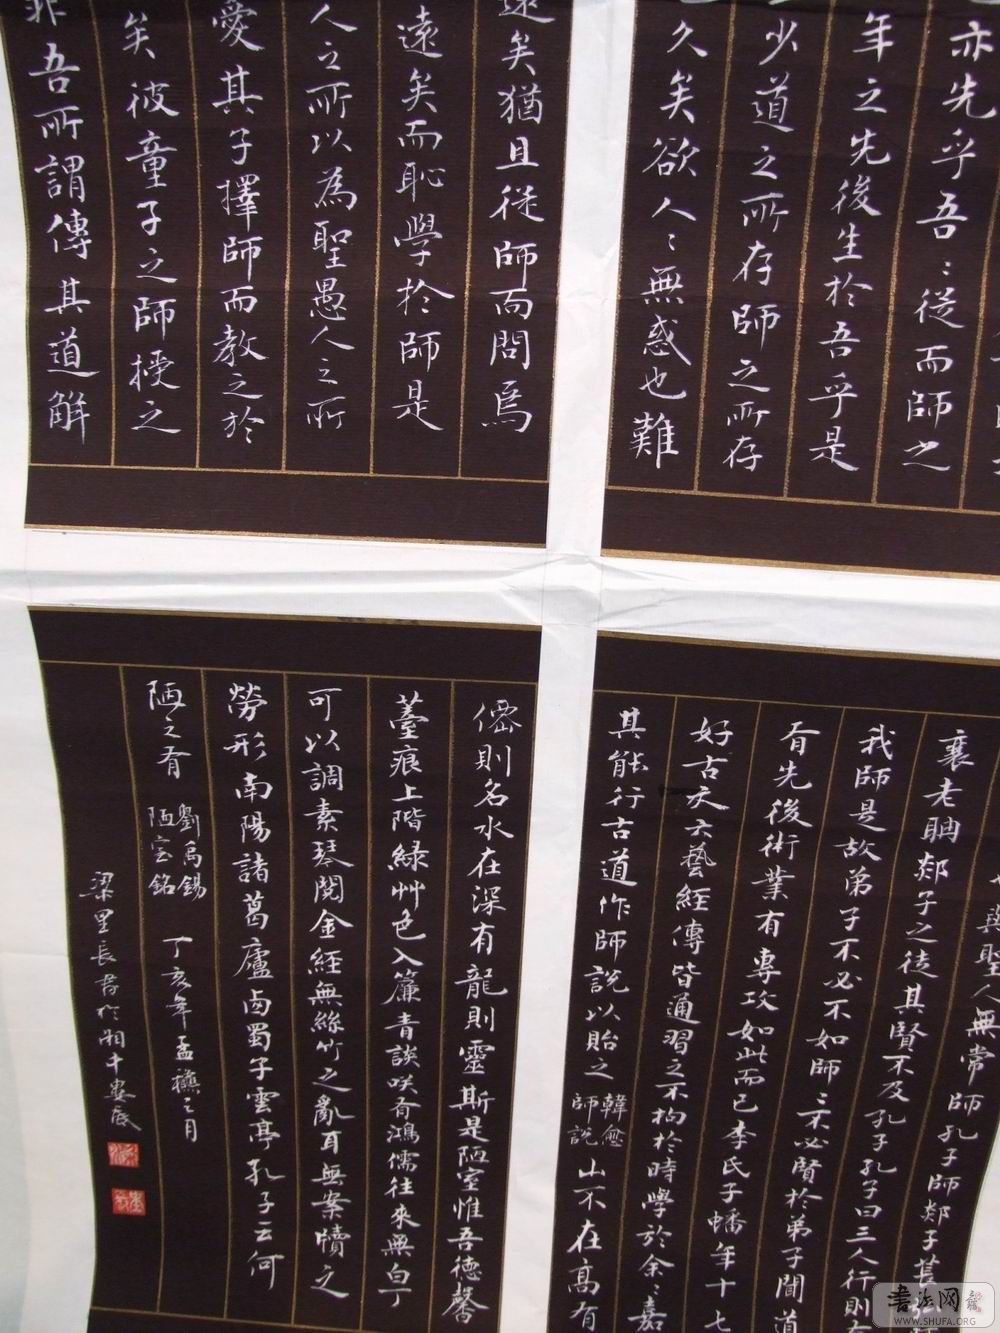 亦先乎吾〻從而師之
年之先後生於吾乎是
少道之所存師之所存
久矣欲人〻無惑也難
遠矣猶且從師而問焉
遠矣而恥學於師是
人之所以為聖愚人之所
愛其子擇師而教之於
矣彼童子之師授之
非吾所謂傳其道解
與聖人無常師孔子師郯子萇
襄老聃郯子之徒其賢不及孔子孔子曰三人行則有
我師是故弟子不必不如師〻不必賢於弟子聞道
有先後術業有專攻如此而已李氏子蟠年十七
好古文六藝經傳皆通習之不拘於時學於余〻嘉
其能行古道作師說以貽之 韓愈師說 山不在高有
僊則名水在深有龍則靈斯是陋室惟吾德馨
薹痕上階綠艸色入簾青談咲有鴻儒往來無白丁
可以調素琴閱金經無絲竹之亂耳無案牘之
勞形南陽諸葛廬西蜀子雲亭孔子云何
陋之有 劉禹錫陋室銘 丁亥年孟
梁里長書於湘
書法网
WWW.SHUFA.ORG